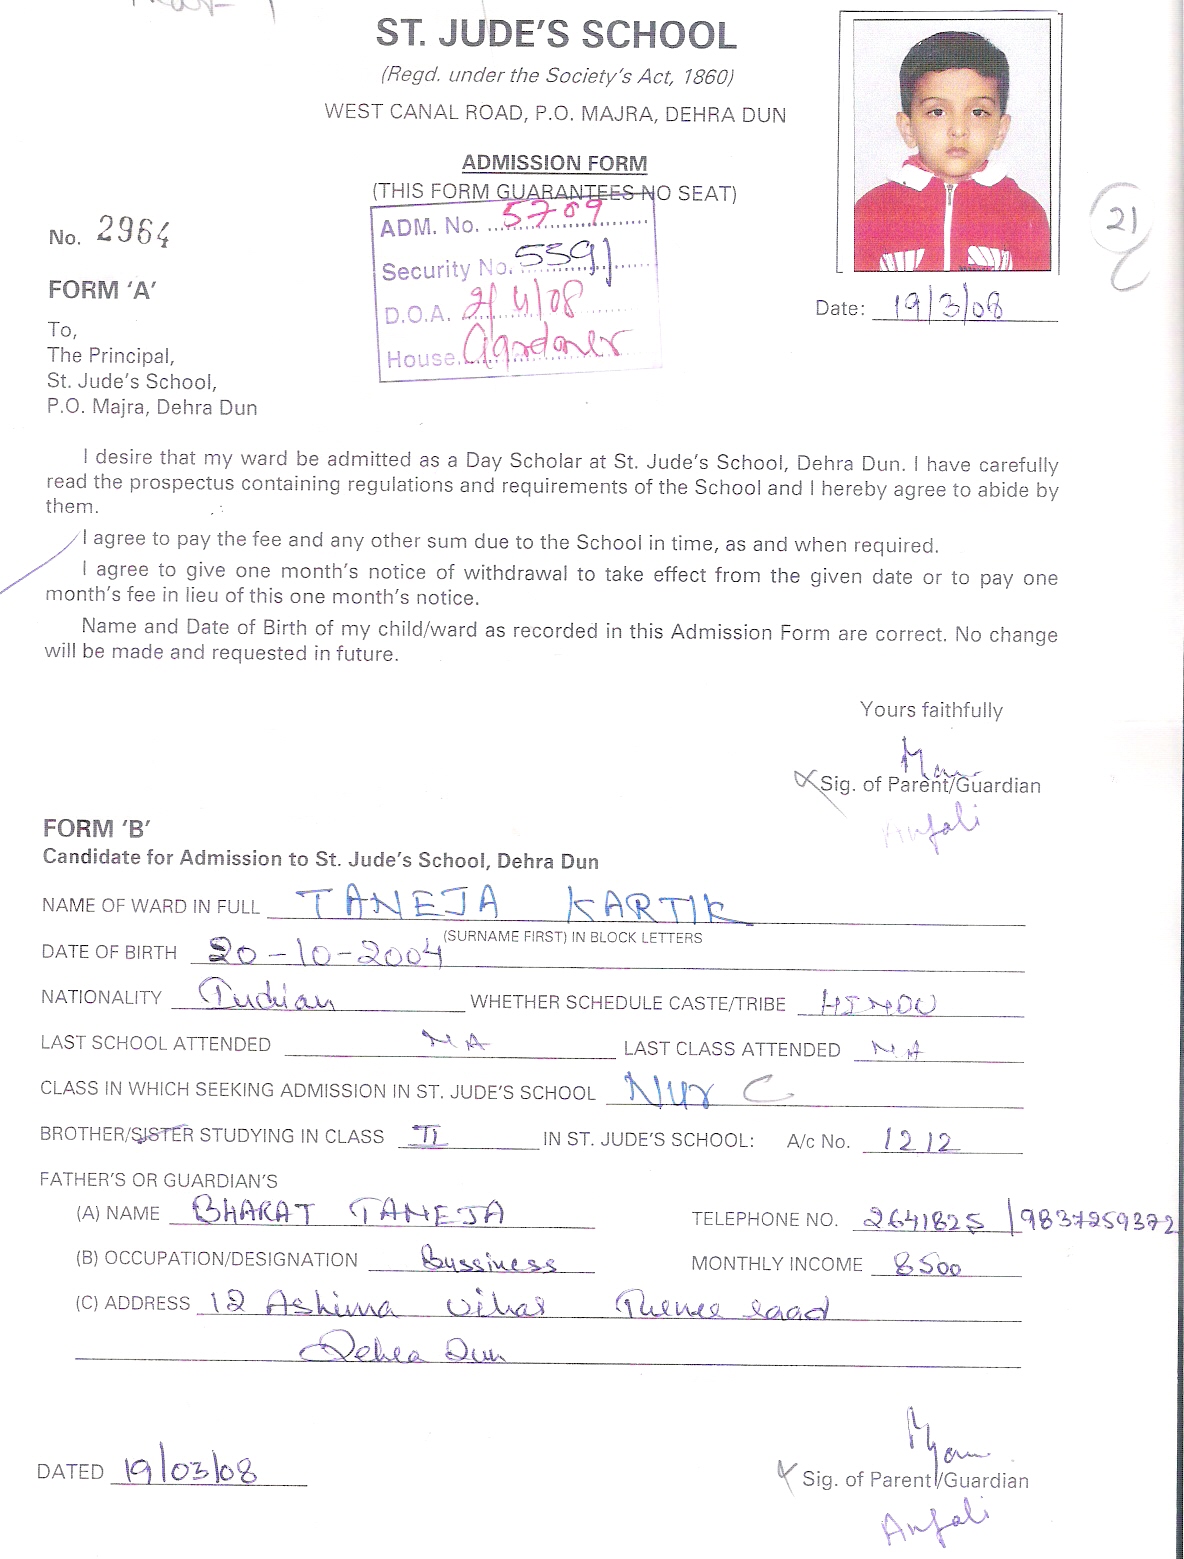 ST. JUDE'S SCHOOL
(Regd. under the Society's Act, 1860)
WEST CANAL ROAD, P.O. MAJRA, DEHRA DUN
ADMISSION FORM
(THIS FORM GUARANTEES NO SEAT)
No. 2964
ADM. No. 5709
Security No. 5591
D.O.A. 2/4/08
House.
21
Date: 19/3/08
FORM 'A'
To,
The Principal,
St. Jude's School,
P.O. Majra, Dehra Dun
I desire that my ward be admitted as a Day Scholar at St. Jude's School, Dehra Dun. I have carefully
read the prospectus containing regulations and requirements of the School and I hereby agree to abide by
them.
I agree to pay the fee and any other sum due to the School in time, as and when required.
I agree to give one month's notice of withdrawal to take effect from the given date or to pay one
month's fee in lieu of this one month's notice.
Name and Date of Birth of my child/ward as recorded in this Admission Form are correct. No change
will be made and requested in future.
Yours faithfully
Sig. of Parent/Guardian
Anjali
FORM 'B'
Candidate for Admission to St. Jude's School, Dehra Dun
NAME OF WARD IN FULL TANEJA KARTIK
(SURNAME FIRST) IN BLOCK LETTERS
DATE OF BIRTH 20-10-2004
NATIONALITY Indian WHETHER SCHEDULE CASTE/TRIBE HINDU
LAST SCHOOL ATTENDED NA LAST CLASS ATTENDED NA
CLASS IN WHICH SEEKING ADMISSION IN ST. JUDE'S SCHOOL Nur C
BROTHER/SISTER STUDYING IN CLASS II IN ST. JUDE'S SCHOOL: A/c No. 1212
FATHER'S OR GUARDIAN'S
(A) NAME BHARAT TANEJA TELEPHONE NO. 2641825 / 9837259372
(B) OCCUPATION/DESIGNATION Bussiness MONTHLY INCOME 8500
(C) ADDRESS 12 Ashima Vihar
Dehra Dun
DATED 19/03/08
Sig. of Parent/Guardian
Anjali